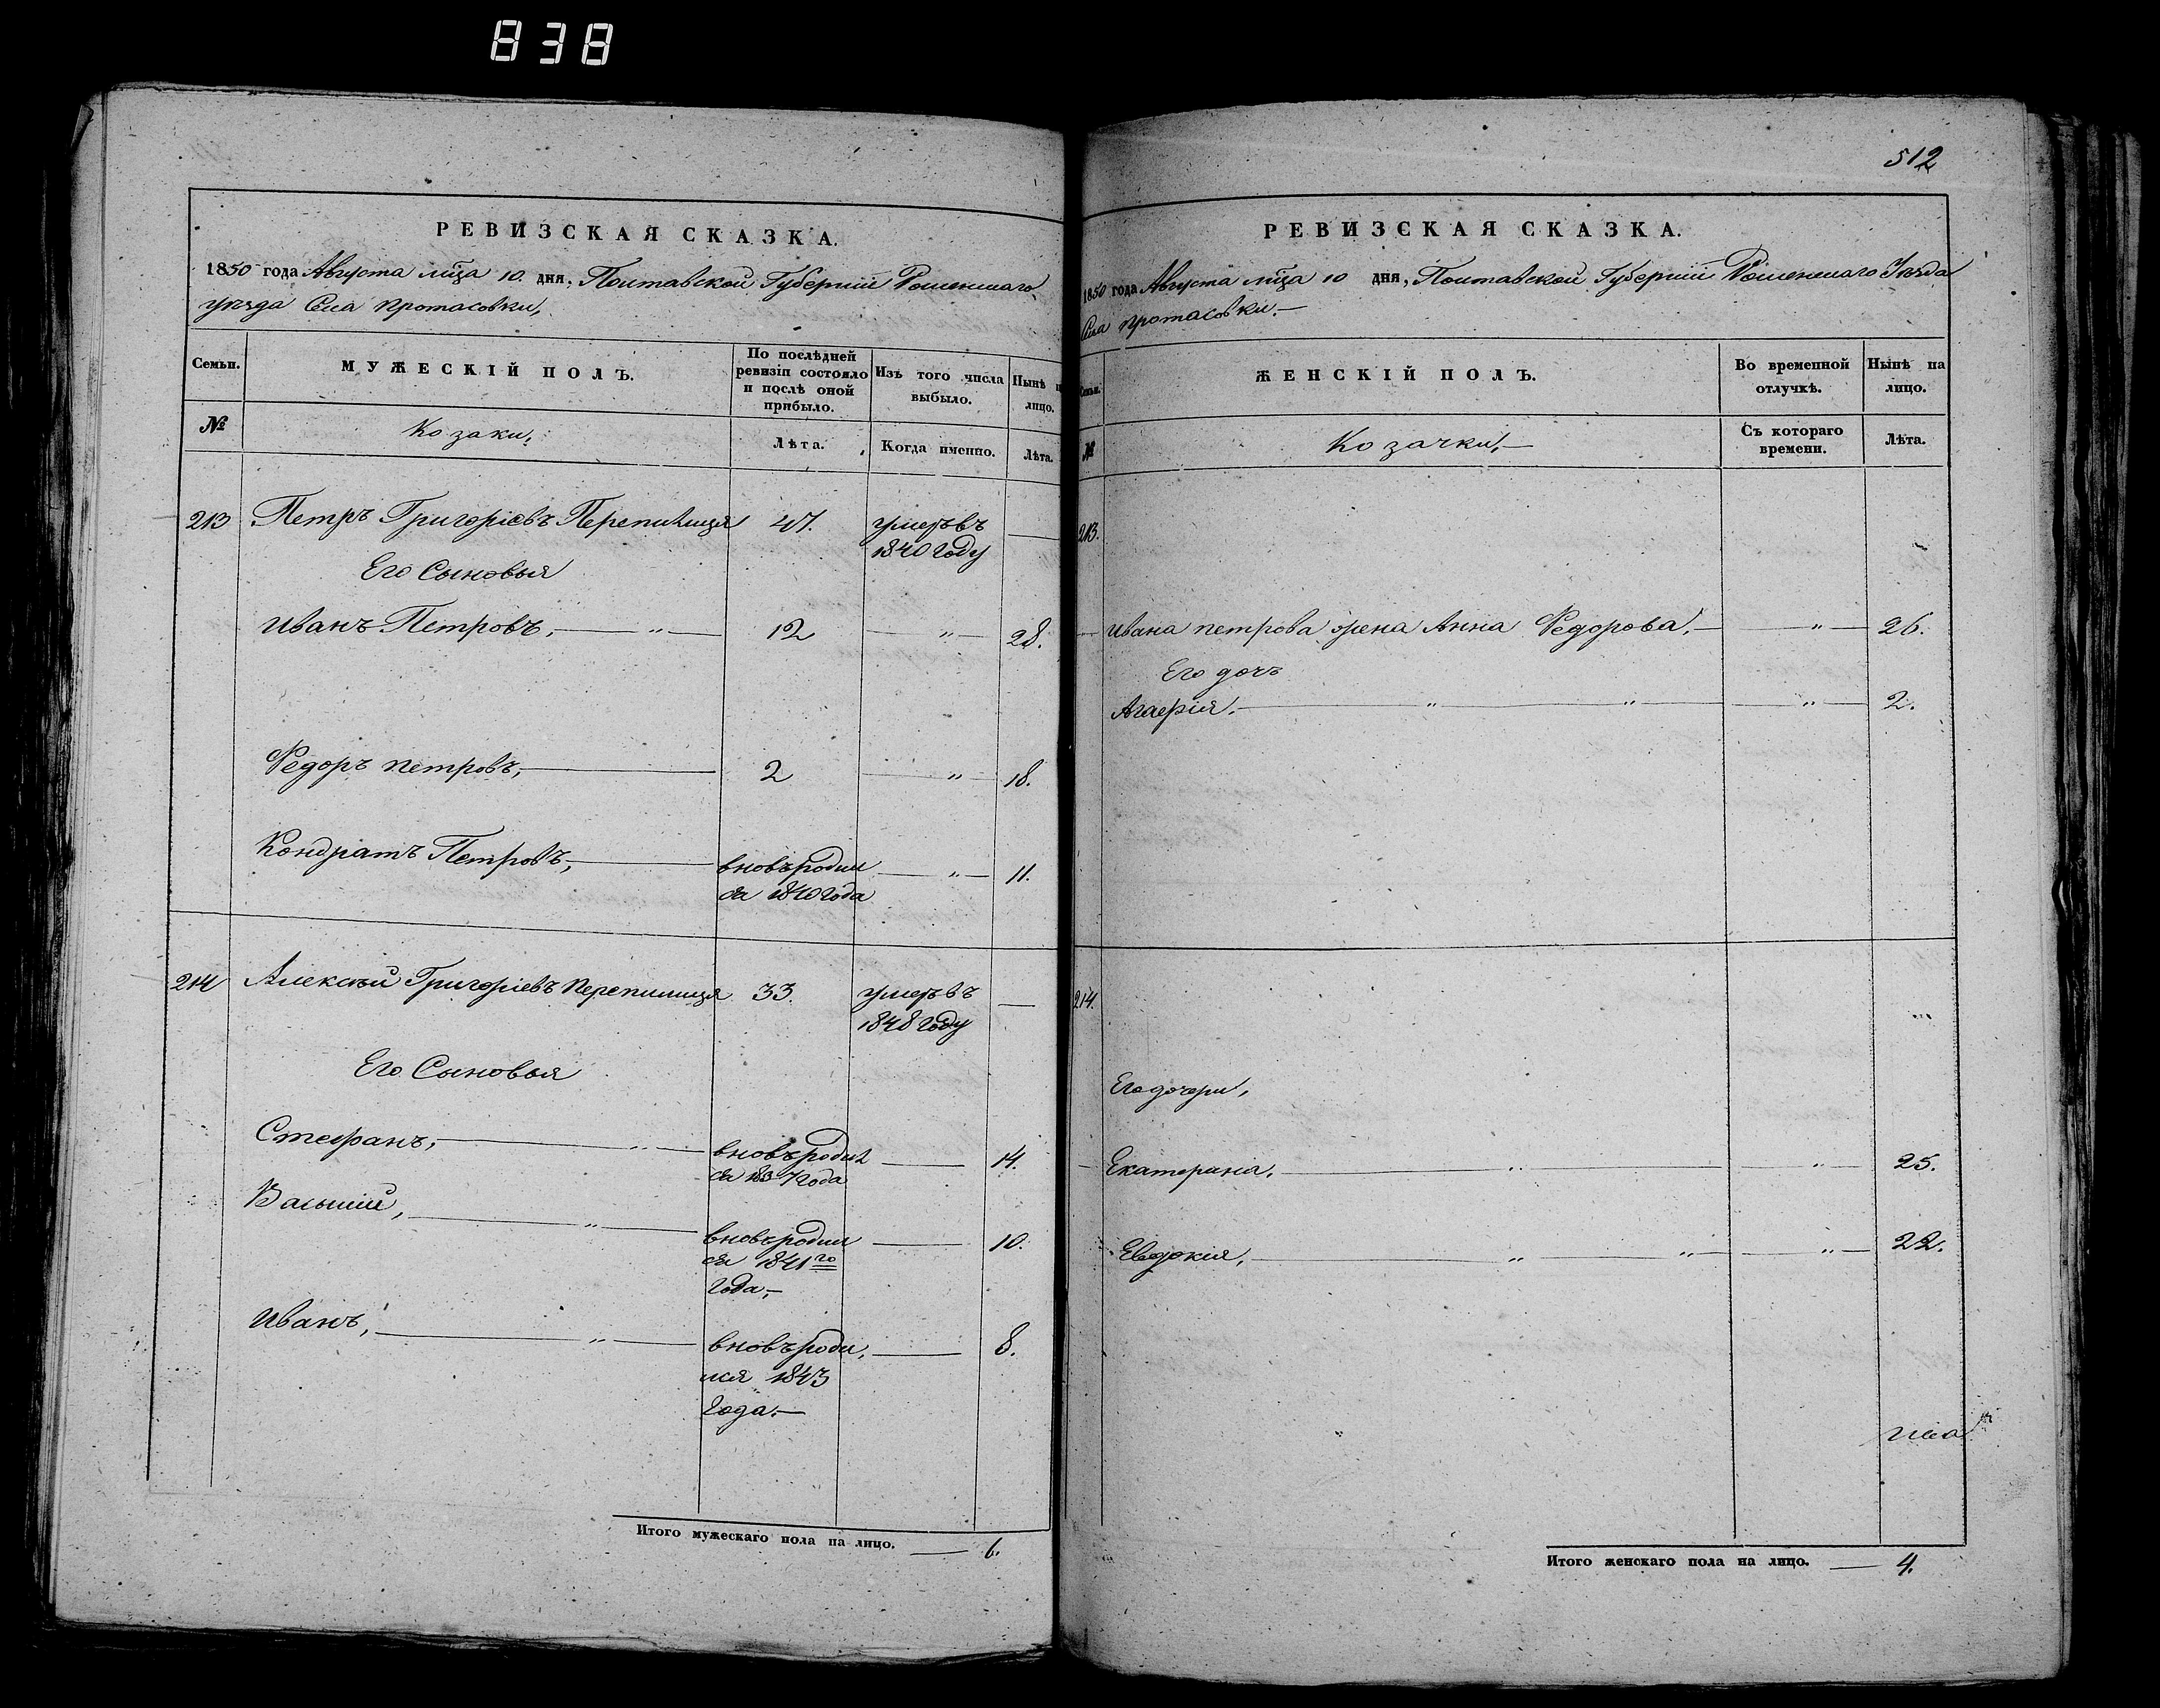 838
РЕВИЗСКАЯ СКАЗКА.
1850 года Августа мѣца 10. дня, Полтавской Губерніи Роменшаго
уѣзда Села Протасовки,
Семьи.
МУЖЕСКІЙ ПОЛЪ.
По послѣдней ревизіи состояло и послѣ оной прибыло.
Изъ того числа выбыло.
Нынѣ
лицо.
№
Козаки,
Лѣта.
Когда именно.
Лѣта.
213 Петръ Григоріевъ Перепилиця 47. умеръ въ
1840 году
Его Сыновья
Иванъ Петровъ. — „ — 12 — „ — 28.
Федоръ Петровъ, — 2 — „ — 18.
Кондратъ Петровъ, — вновьродил — „ — 11.
ся 1840 года
214 Алексѣй Григоріевъ Перепилиця 33. умеръ въ —
1848 году
Его Сыновья
Стефанъ, — „ — вновьродил — 14.
ся 1837 года
Василий, — „ — вновьродил — 10.
ся 1841го
года,—
Иванъ, — „ — вновьроди, — 8.
лся 1843
года.—
Итого мужескаго пола на лицо. — 6.
512
РЕВИЗСКАЯ СКАЗКА.
1850 года Августа мѣца 10 дня, Полтавской Губерніи Роменшаго Уѣзда
Села Протасовки.—
Семьи.
ЖЕНСКІЙ ПОЛЪ.
Во временной отлучкѣ.
Нынѣ на лицо.
№
Козачки,—
Съ котораго времени.
Лѣта.
213.
Ивана Петрова жена Анна Федорова. — „ — 26.
Его дочь
Агафія. — „ — „ — „ — 2.
214.
Его дочери,
Екатерина, — „ — „ — 25.
Евдокия, — „ — „ — „ — 22.
Итого женскаго пола на лицо. — 4.